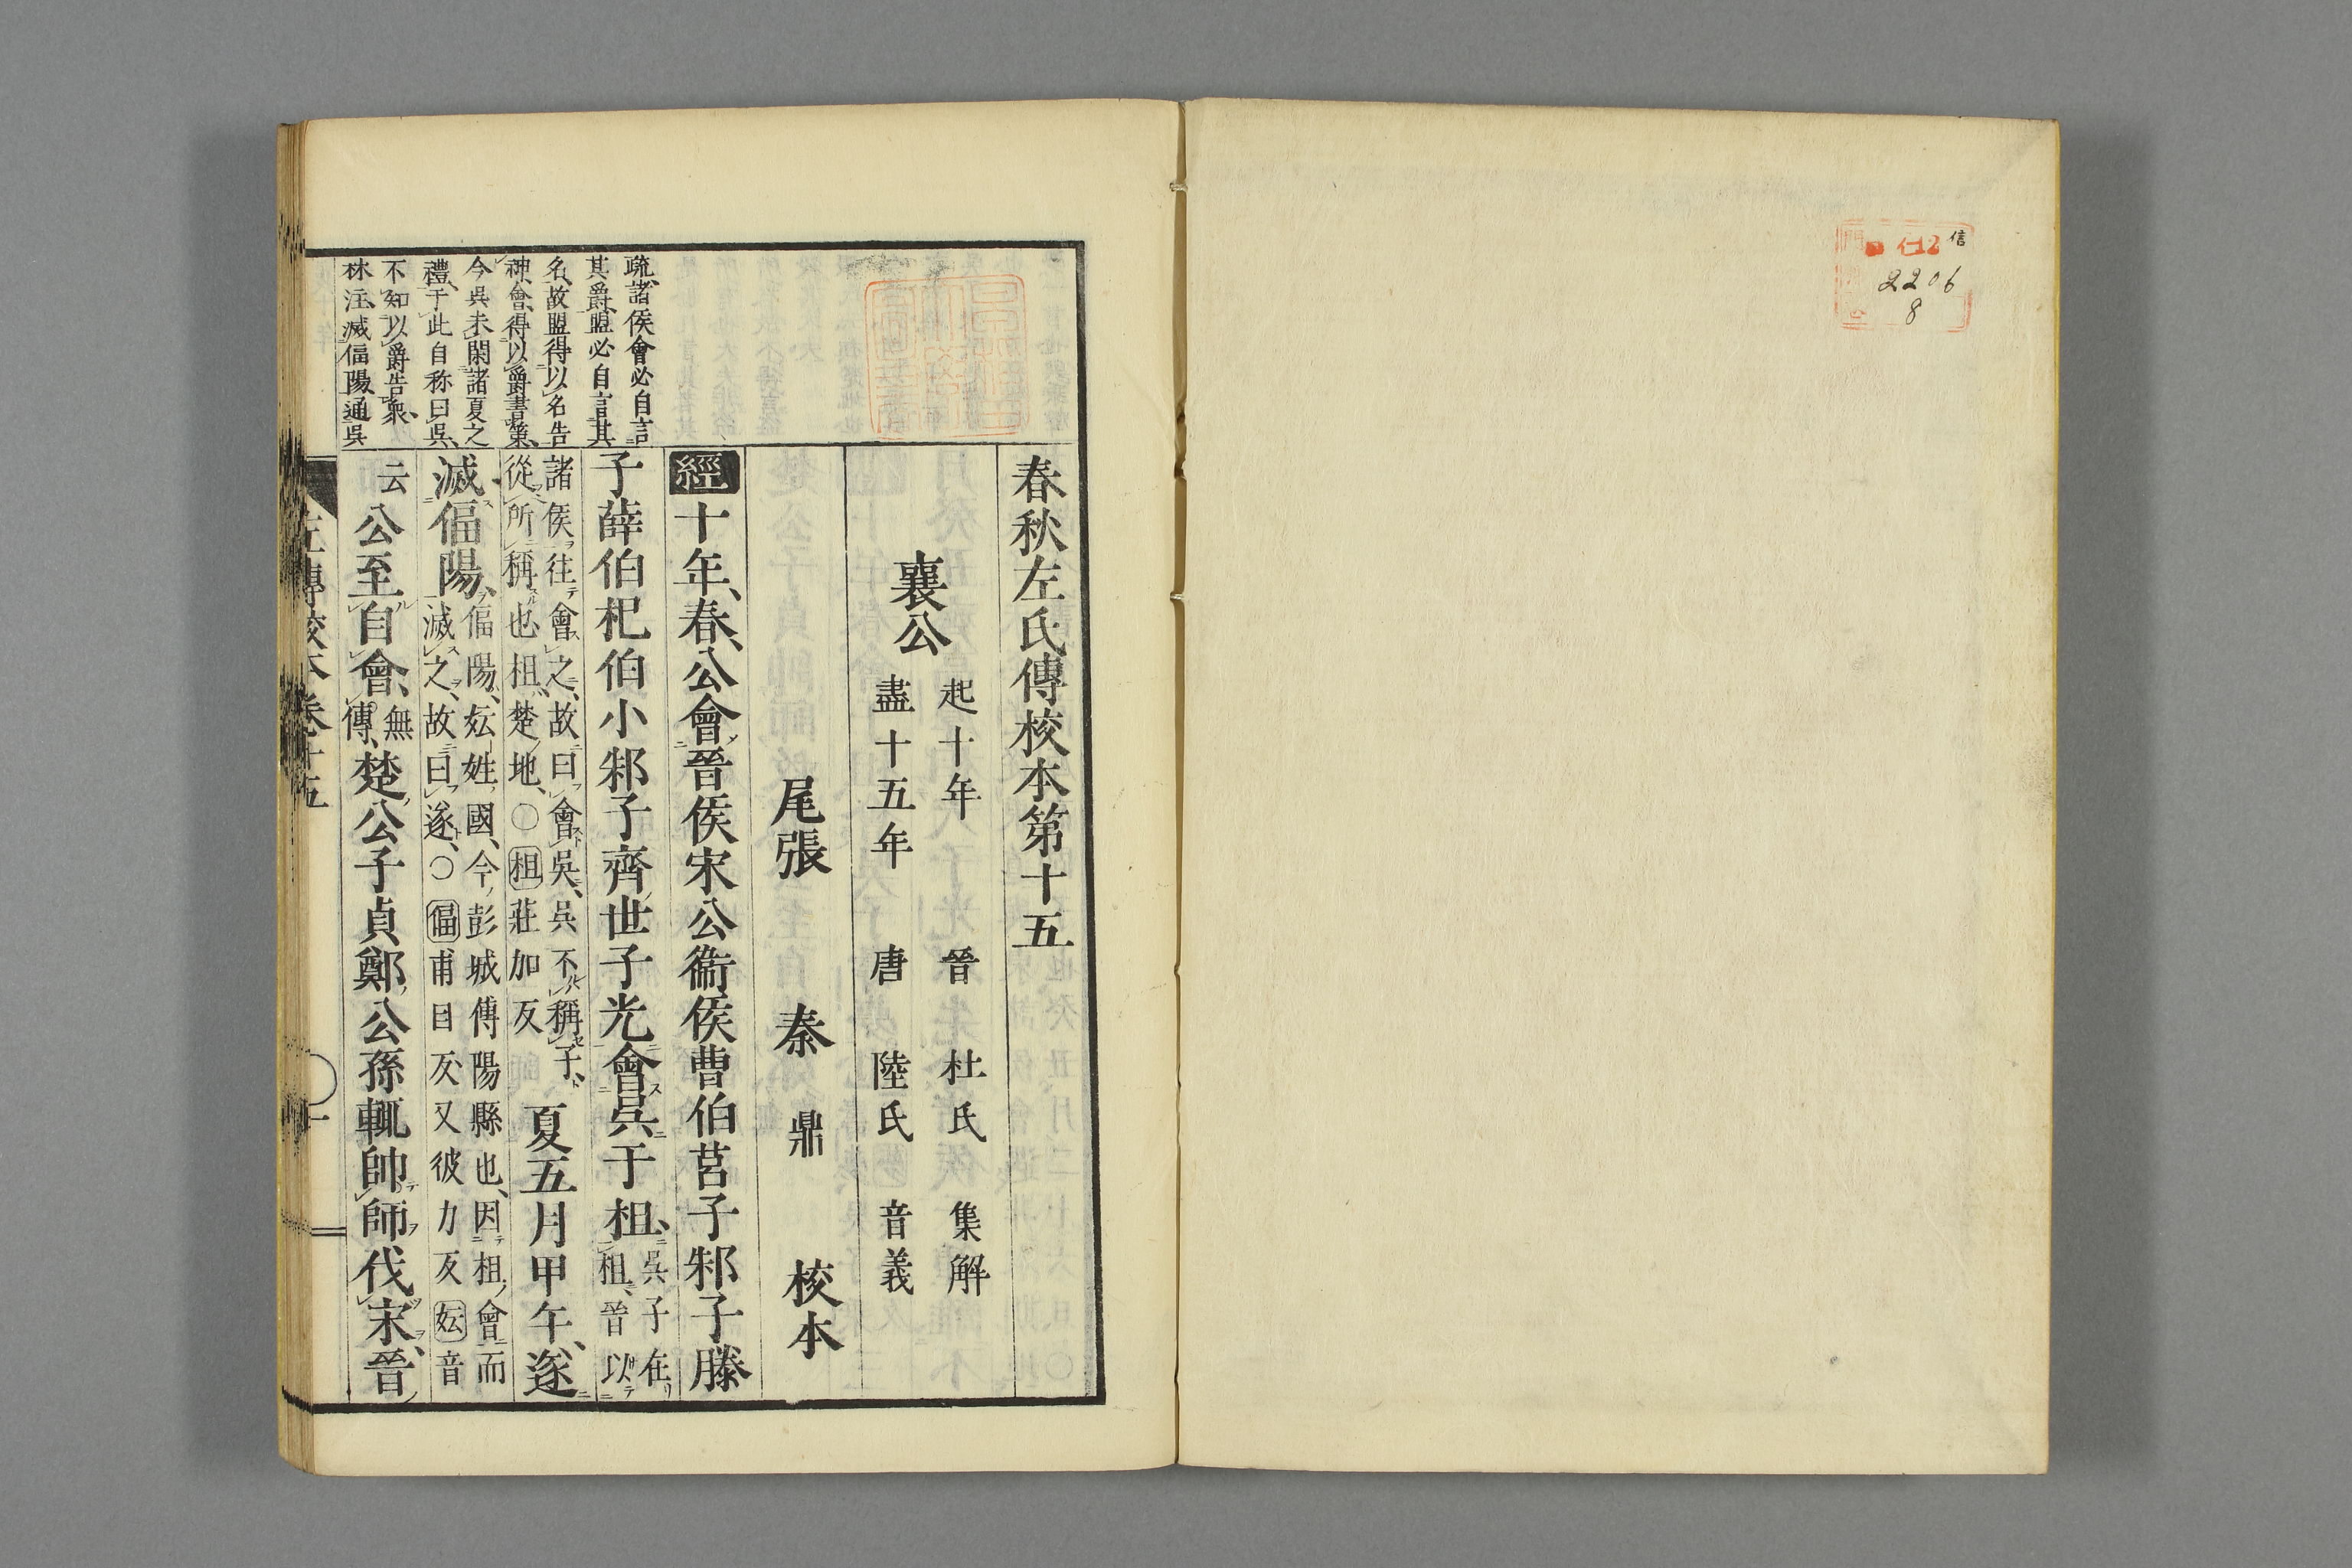 信
仁12
2206
8
春秋左氏傳校本第十五
襄公
起十年
盡十五年
晉 杜氏 集解
唐 陸氏 音義
尾張 秦 鼎 校本
經十年、春、公會晉侯宋公衞侯曹伯莒子邾子滕
子薛伯杞伯小邾子齊世子光會吳于柤、
吳子在
柤、晉以
諸侯往會之、故曰會吳、吳不稱子、
從所稱也、柤、楚地、〇柤莊加反
夏五月甲午、遂
滅偪陽、
偪陽、妘姓國、今彭城傅陽縣也、因柤會而
滅之、故曰遂、〇偪甫目反、又彼力反妘音
云
公至自會、
無
傳、
楚公子貞鄭公孫輒帥師伐宋、晉
疏、諸侯會必自言
其爵、盟必自言其
名、故盟得以名告
神、會得以爵書策、
今吳未閑諸夏之
禮、于此自称曰吳、
不知以爵告衆、
林注、滅偪陽、通吳
左傳校本 卷十五
一